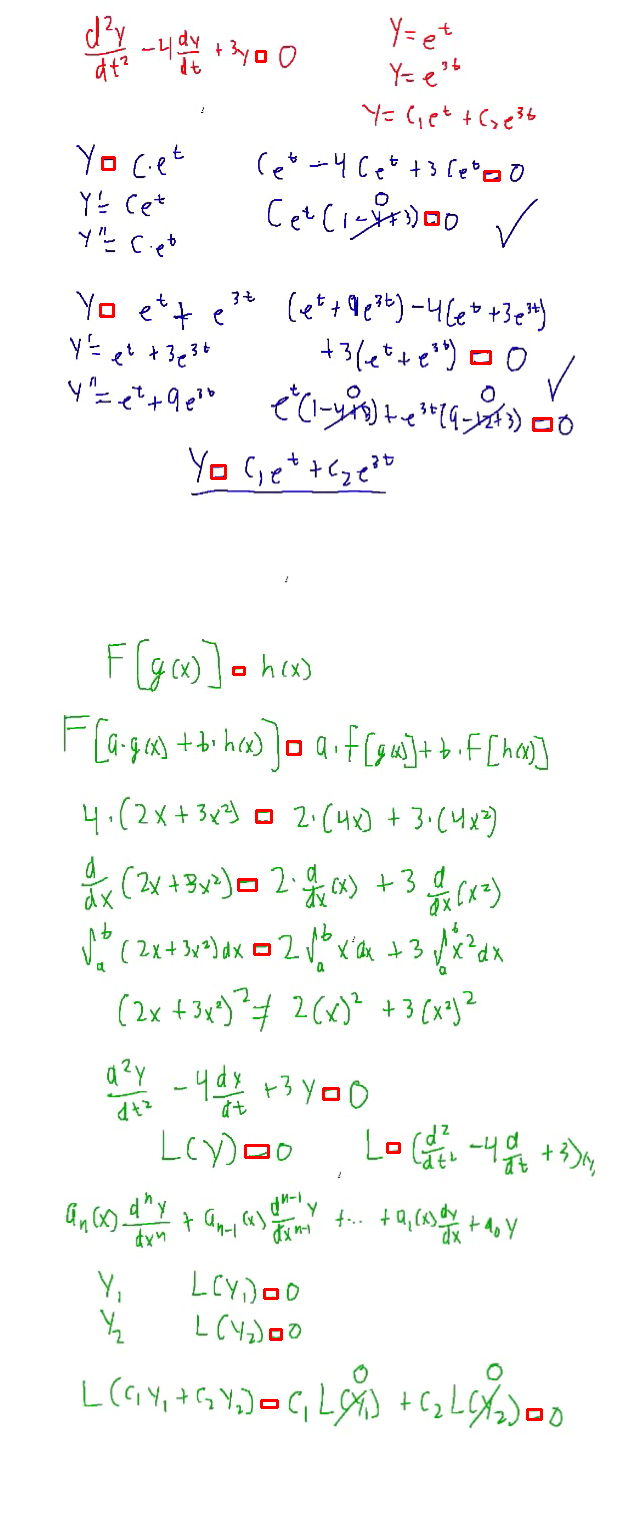 d²y/dt² - 4 dy/dt + 3y = 0
Y = e^t
Y = e^{3t}
Y = C₁e^t + C₂e^{3t}
Y = C·e^t
Ce^t - 4Ce^t + 3Ce^t = 0
Y' = Ce^t
Ce^t(1-4+3) = 0 ✓
0
Y'' = C·e^t
Y = e^t + e^{3t}
(e^t + 9e^{3t}) - 4(e^t + 3e^{3t})
Y' = e^t + 3e^{3t}
+3(e^t + e^{3t}) = 0 ✓
Y'' = e^t + 9e^{3t}
0 0
e^t(1-4+3) + e^{3t}(9-12+3) = 0
Y = C₁e^t + C₂e^{3t}
F[g(x)] = h(x)
F[a·g(x) + b·h(x)] = a·F[g(x)] + b·F[h(x)]
4·(2x + 3x²) = 2·(4x) + 3·(4x²)
d/dx (2x + 3x²) = 2·d/dx (x) + 3 d/dx (x²)
∫_a^b (2x + 3x²)dx = 2∫_a^b x dx + 3∫_a^b x² dx
(2x + 3x²)² ≠ 2(x)² + 3(x²)²
d²y/dt² - 4 dy/dt + 3Y = 0
L(Y) = 0
L = (d²/dt² - 4 d/dt + 3)
a_n(x) d^n y/dx^n + a_{n-1}(x) d^{n-1}y/dx^{n-1} + ... + a₁(x) dy/dx + a₀Y
Y₁ L(Y₁) = 0
Y₂ L(Y₂) = 0
0 0
L(C₁Y₁ + C₂Y₂) = C₁L(Y₁) + C₂L(Y₂) = 0